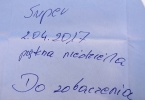 Super
2.04.2017
piękna niedziela
Do zobaczenia